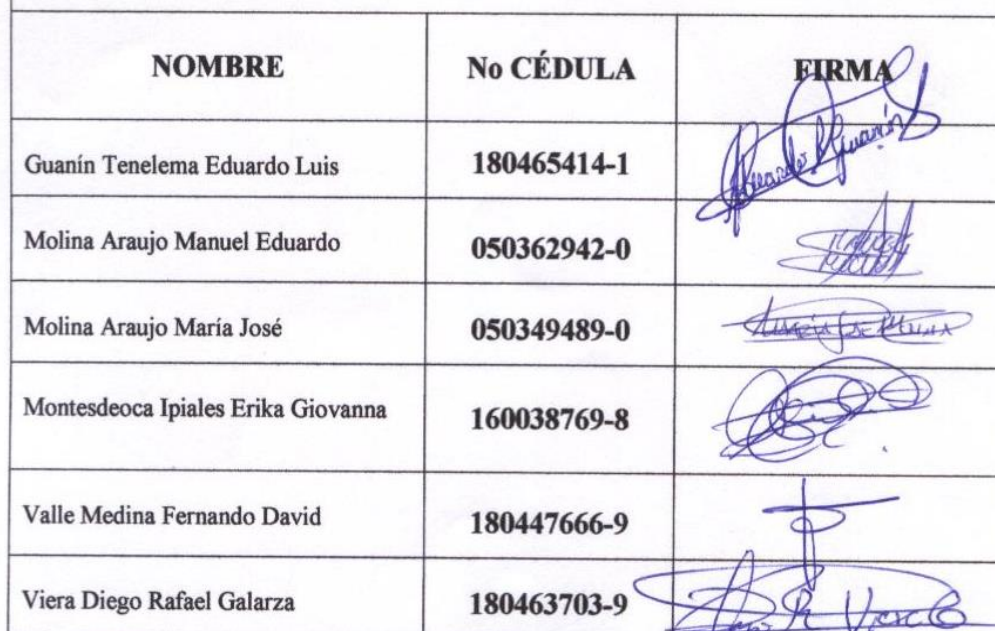 NOMBRE No CÉDULA FIRMA
Guanín Tenelema Eduardo Luis 180465414-1
Molina Araujo Manuel Eduardo 050362942-0
Molina Araujo María José 050349489-0
Montesdeoca Ipiales Erika Giovanna 160038769-8
Valle Medina Fernando David 180447666-9
Viera Diego Rafael Galarza 180463703-9